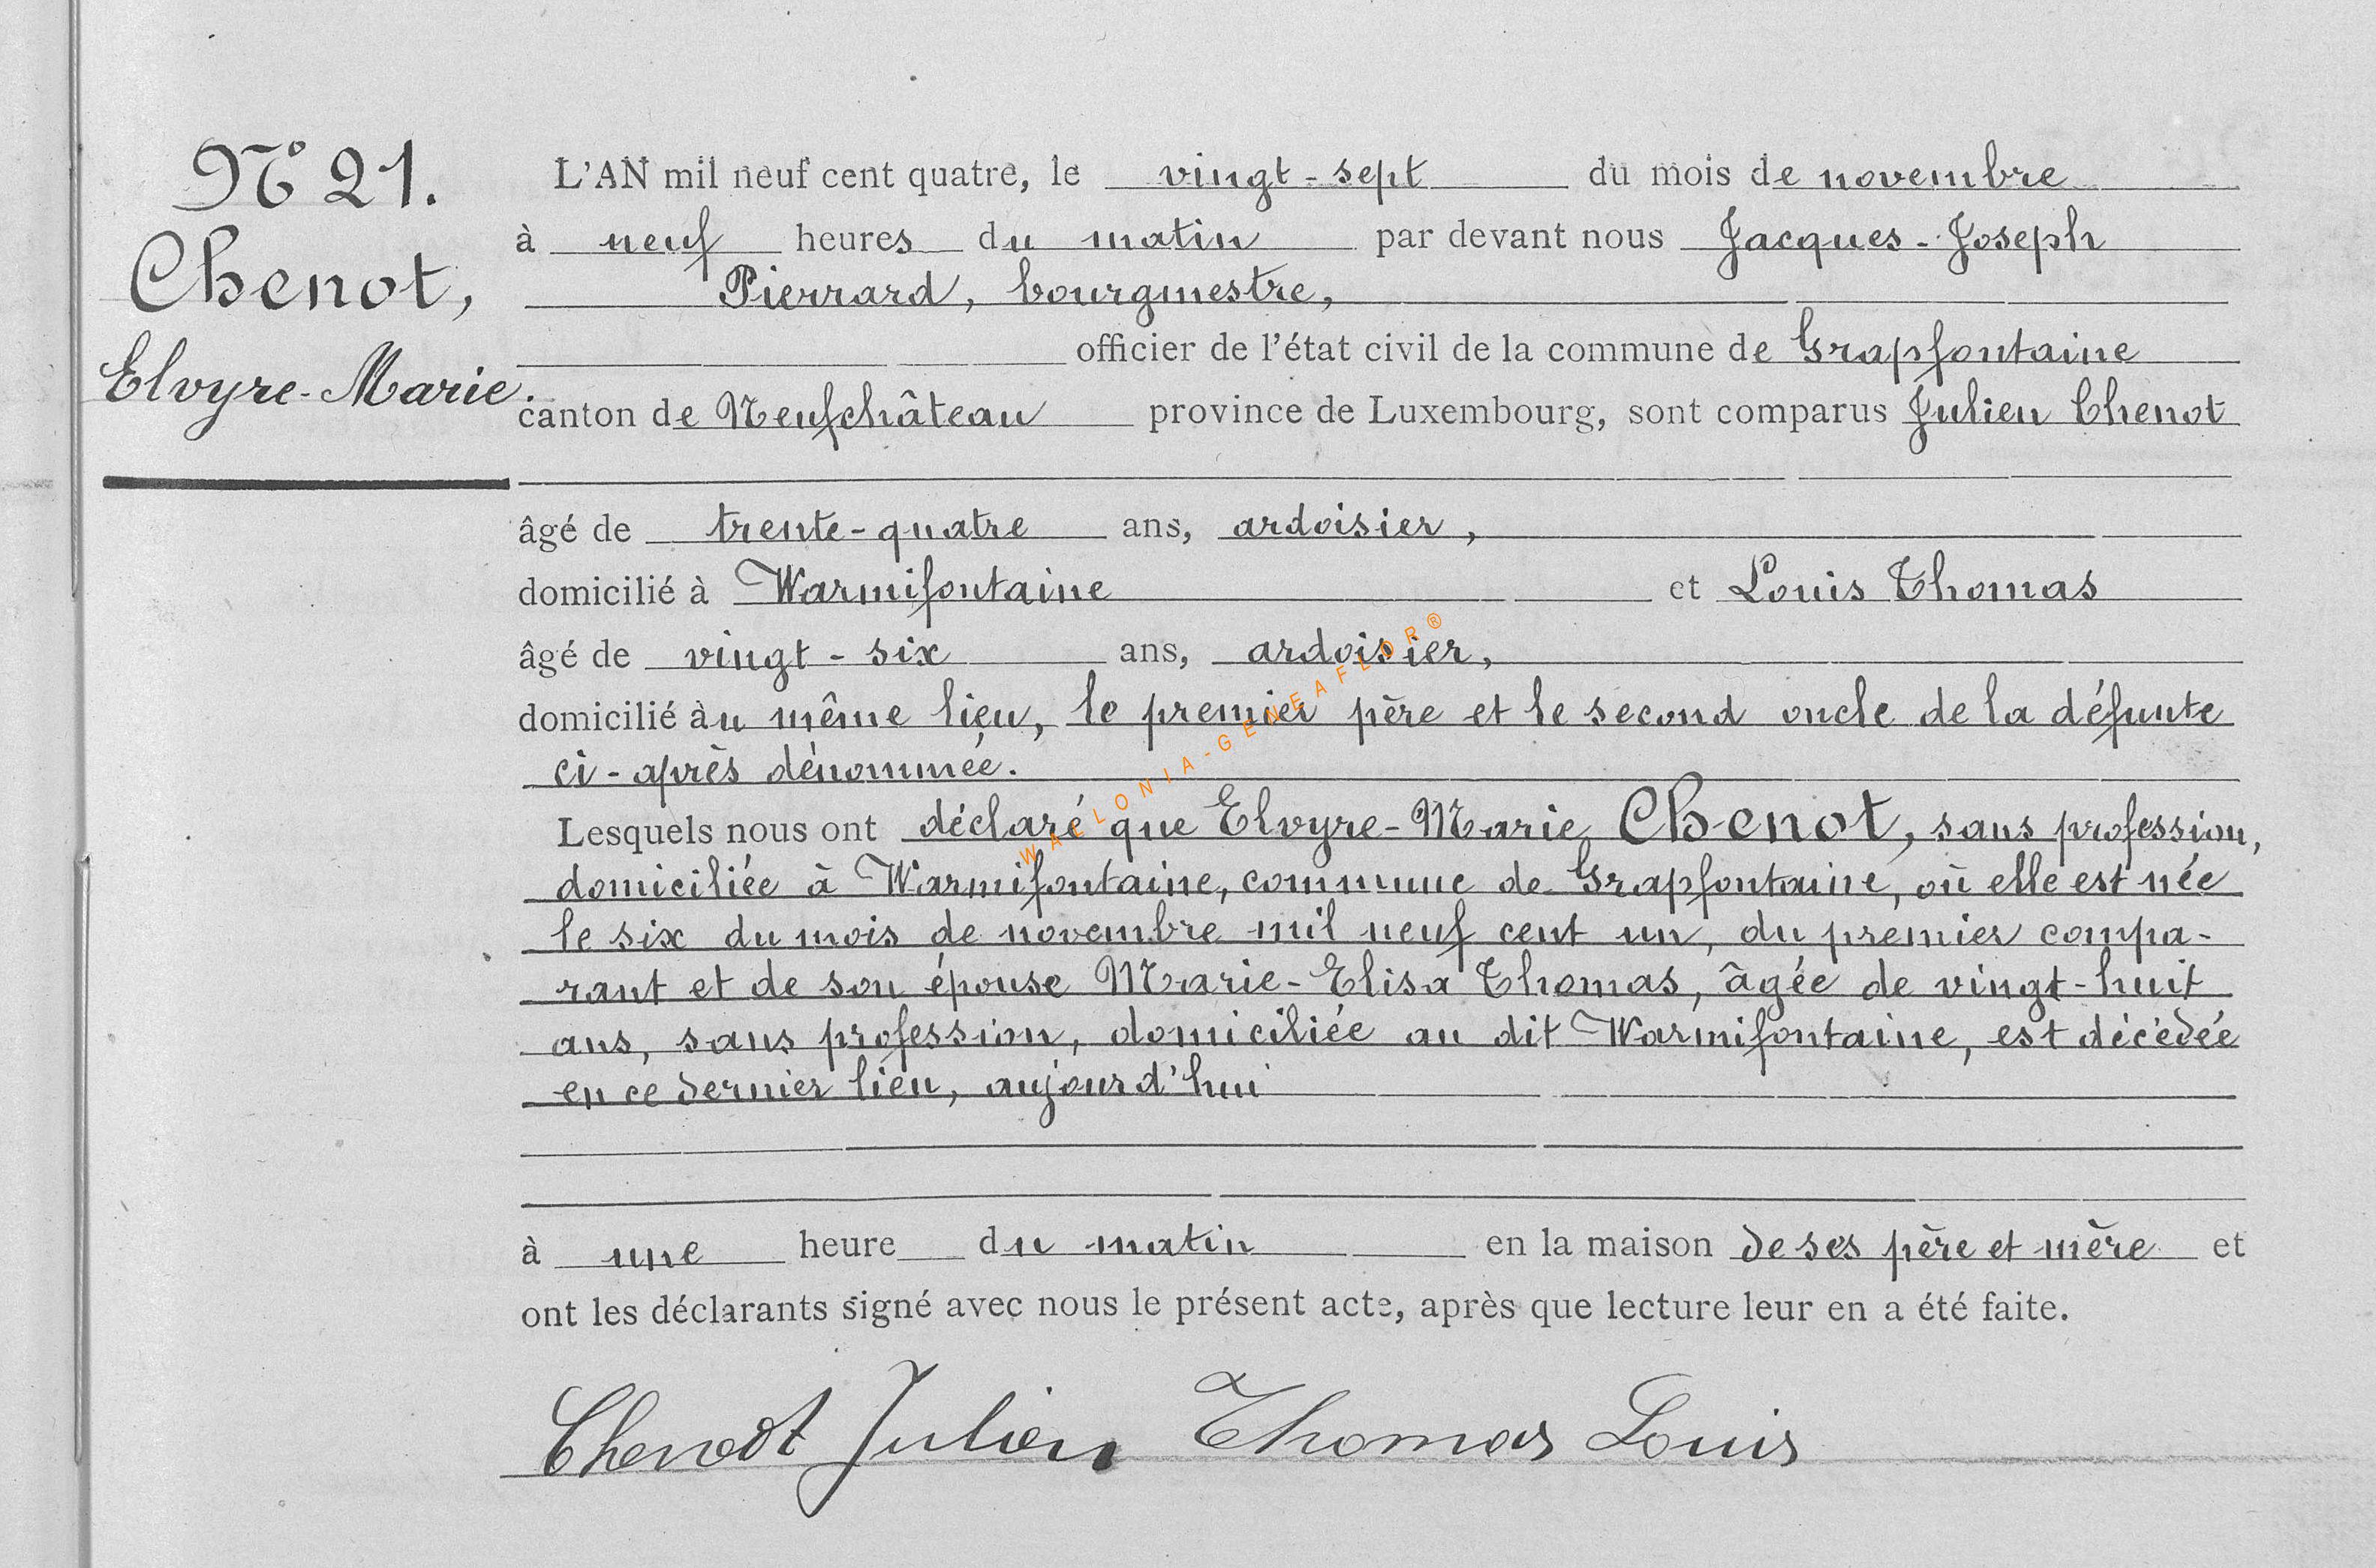 N° 21.
Chenot,
Elvyre-Marie.
L'AN mil neuf cent quatre, le vingt-sept du mois de novembre
à neuf heures du matin par devant nous Jacques-Joseph
Pierrard, bourgmestre,
officier de l'état civil de la commune de Grapfontaine
canton de Neufchâteau province de Luxembourg, sont comparus Julien Chenot
âgé de trente-quatre ans, ardoisier,
domicilié à Warmifontaine et Louis Thomas
âgé de vingt-six ans, ardoisier,
domicilié àu même lieu, le premier père et le second oncle de la défunte
ci-après dénommée.
Lesquels nous ont déclaré que Elvyre-Marie Chenot, sans profession,
domiciliée à Warmifontaine, commune de Grapfontaine, où elle est née
le six du mois de novembre mil neuf cent un, du premier compa-
rant et de son épouse Marie-Elisa Thomas, âgée de vingt-huit
ans, sans profession, domiciliée au dit Warmifontaine, est décédée
en ce dernier lieu, aujourd'hui
à une heure du matin en la maison de ses père et mère et
ont les déclarants signé avec nous le présent acte, après que lecture leur en a été faite.
Chenot Julien Thomas Louis
WALLONIA-GENEAFLOR®